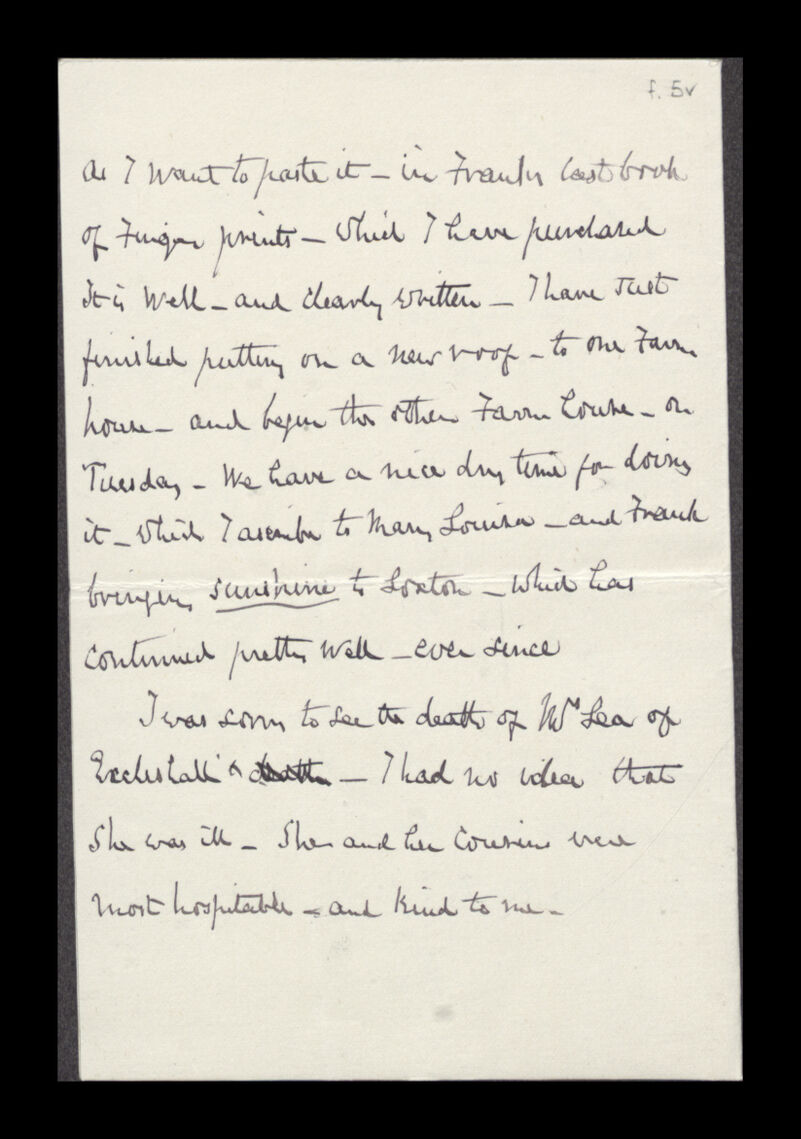 f. 5v
as I want to paste it – in Frank's last book
of Finger prints – which I have purchased
It is well – and clearly written – I have just
finished putting on a new roof – to one Farm
house – and begin the other Farm house – on
Tuesday – We have a nice dry time for doing
it – which I ascribe to Mary Louisa – and Frank
bringing sunshine to Loxton – which has
continued pretty well – ever since
I was sorry to see the death of Mrs Lea of
Eccleshall – I had no idea that
She was ill – She and her Cousin were
most hospitable – and kind to me –